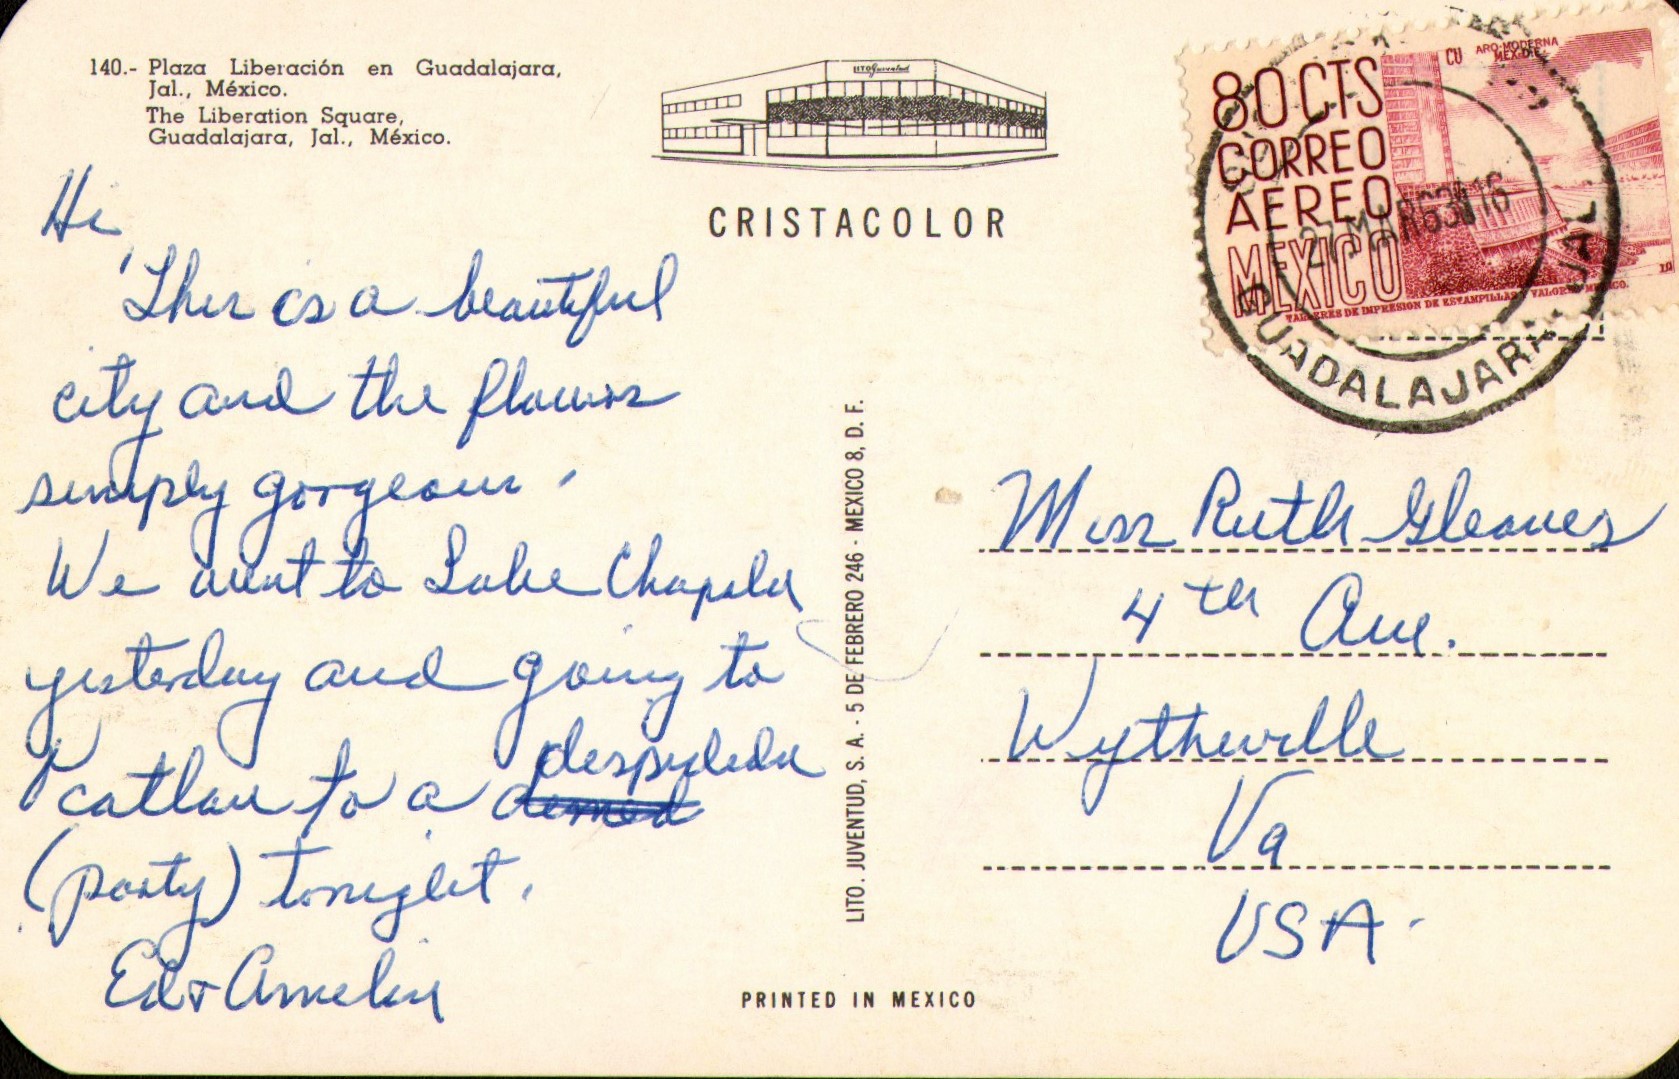 140.- Plaza Liberación en Guadalajara,
Jal., México.
The Liberation Square,
Guadalajara, Jal., México.
LITO Juventud
CRISTACOLOR
80 CTS
CORREO
AEREO
MEXICO
CU ARQ-MODERNA
MEX-D.F.
TALLERES DE IMPRESION DE ESTAMPILLAS Y VALORES-MEXICO.
27 MAR 63 16
GUADALAJARA, JAL.
Hi
This is a beautiful
city and the flowers
simply gorgeous.
We went to Lake Chapala
yesterday and going to
catlan to a despedida
(party) tonight.
Ed & Amelia
LITO. JUVENTUD, S. A. - 5 DE FEBRERO 246 - MEXICO 8, D. F.
Miss Ruth Gleaves
4th Ave.
Wytheville
Va
USA.
PRINTED IN MEXICO